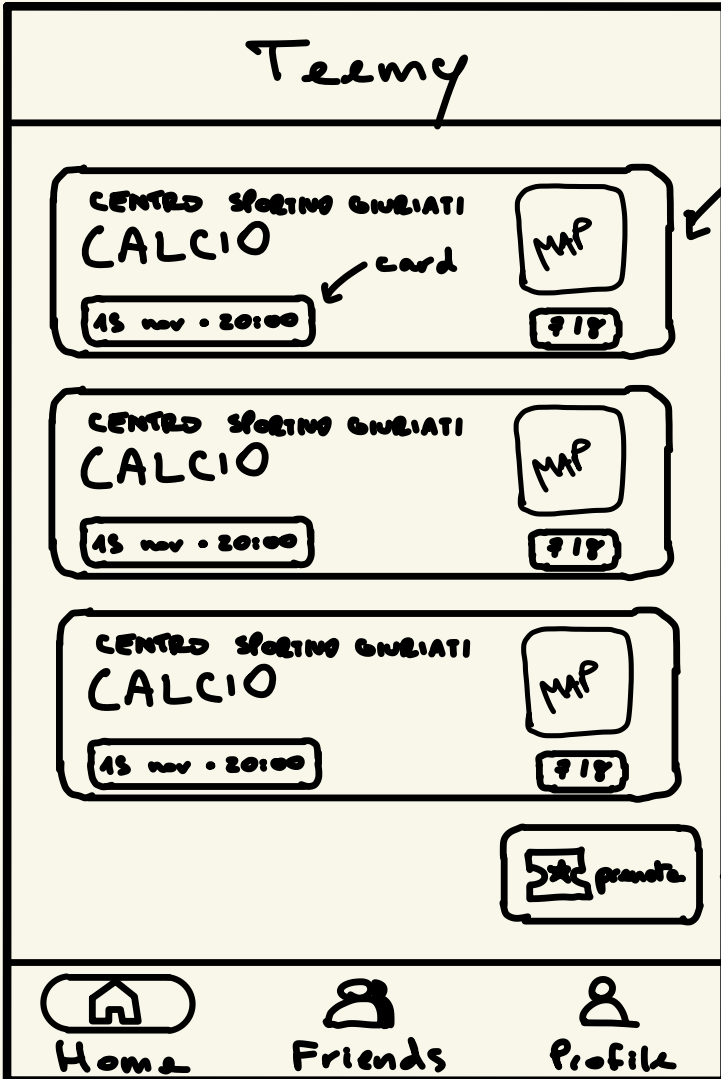 Teemy
CENTRO SPORTIVO GIURIATI
CALCIO
MAP
card
15 nov • 20:00
7/8
CENTRO SPORTIVO GIURIATI
CALCIO
MAP
15 nov • 20:00
7/8
CENTRO SPORTIVO GIURIATI
CALCIO
MAP
15 nov • 20:00
7/8
prenota
Home
Friends
Profile